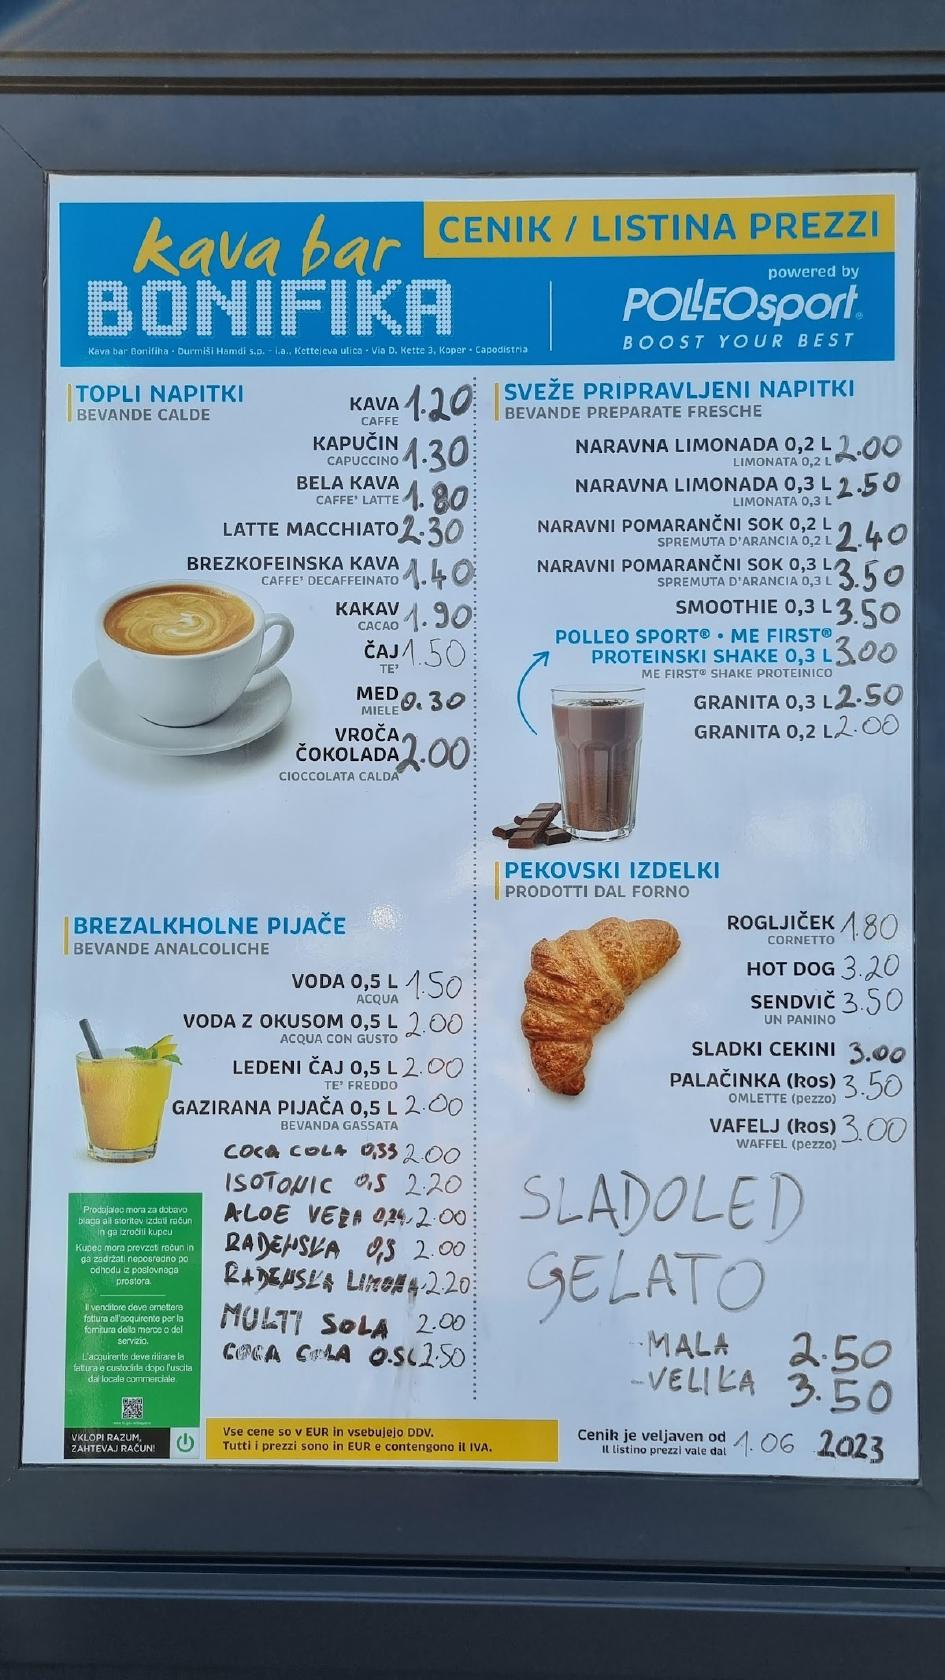 kava bar
BONIFIKA
Kava bar Bonifika • Durmiši Hamdi s.p. - i.a., Kettejeva ulica • Via D. Kette 3, Koper • Capodistria
CENIK / LISTINA PREZZI
powered by
POLLEOsport®
BOOST YOUR BEST
TOPLI NAPITKI
BEVANDE CALDE
KAVA 1.20
CAFFE
KAPUČIN 1.30
CAPUCCINO
BELA KAVA 1.80
CAFFE' LATTE
LATTE MACCHIATO 2.30
BREZKOFEINSKA KAVA 1.40
CAFFE' DECAFFEINATO
KAKAV 1.90
CACAO
ČAJ 1.50
TE'
MED 0.30
MIELE
VROČA
ČOKOLADA 2.00
CIOCCOLATA CALDA
BREZALKHOLNE PIJAČE
BEVANDE ANALCOLICHE
VODA 0,5 L 1.50
ACQUA
VODA Z OKUSOM 0,5 L 2.00
ACQUA CON GUSTO
LEDENI ČAJ 0,5 L 2.00
TE' FREDDO
GAZIRANA PIJAČA 0,5 L 2.00
BEVANDA GASSATA
COCA COLA 0,33 2.00
ISOTONIC 0,5 2.20
ALOE VERA 0,24 2.00
RADENSKA 0,5 2.00
RADENSKA LIMONA 2.20
MULTI SOLA 2.00
COCA COLA 0.5L 2.50
Prodajalec mora za dobavo
blaga ali storitev izdati račun
in ga izročiti kupcu
Kupec mora prevzeti račun in
ga zadržati neposredno po
odhodu iz poslovnega
prostora.
Il venditore deve emettere
fattura all'acquirente per la
fornitura della merce o del
servizio.
L'acquirente deve ritirare la
fattura e custodirla dopo l'uscita
dal locale commerciale.
VKLOPI RAZUM,
ZAHTEVAJ RAČUN!
Vse cene so v EUR in vsebujejo DDV.
Tutti i prezzi sono in EUR e contengono il IVA.
SVEŽE PRIPRAVLJENI NAPITKI
BEVANDE PREPARATE FRESCHE
NARAVNA LIMONADA 0,2 L 2.00
LIMONATA 0,2 L
NARAVNA LIMONADA 0,3 L 2.50
LIMONATA 0,3 L
NARAVNI POMARANČNI SOK 0,2 L 2.40
SPREMUTA D'ARANCIA 0,2 L
NARAVNI POMARANČNI SOK 0,3 L 3.50
SPREMUTA D'ARANCIA 0,3 L
SMOOTHIE 0,3 L 3.50
POLLEO SPORT® • ME FIRST®
PROTEINSKI SHAKE 0,3 L 3.00
ME FIRST® SHAKE PROTEINICO
GRANITA 0,3 L 2.50
GRANITA 0,2 L 2.00
PEKOVSKI IZDELKI
PRODOTTI DAL FORNO
ROGLJIČEK 1.80
CORNETTO
HOT DOG 3.20
SENDVIČ 3.50
UN PANINO
SLADKI CEKINI 3.00
PALAČINKA (kos) 3.50
OMLETTE (pezzo)
VAFELJ (kos) 3.00
WAFFEL (pezzo)
SLADOLED
GELATO
-MALA 2.50
-VELIKA 3.50
Cenik je veljaven od 1.06 2023
Il listino prezzi vale dal